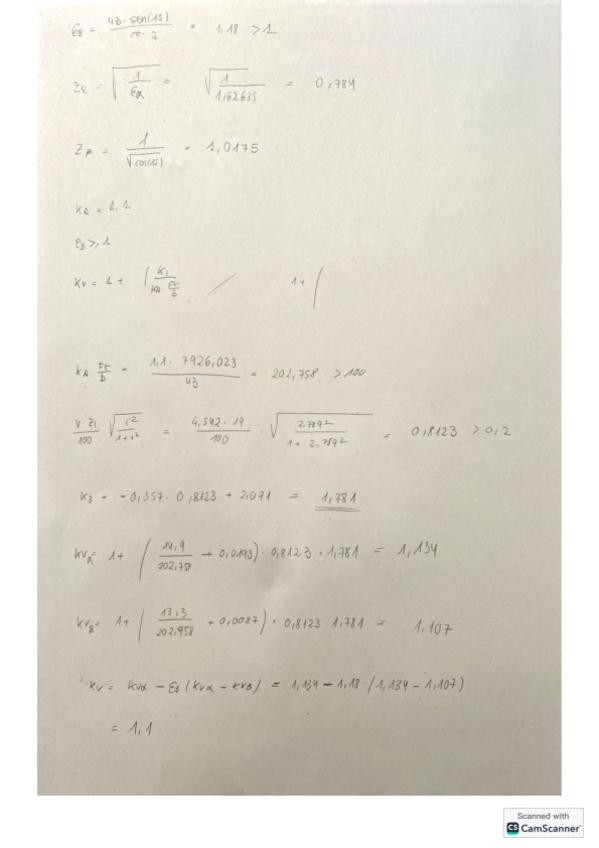 εβ = 43 · sen(15) / π · 3 = 1,18 > 1
Zε = √(1 / εα) = √(1 / 1,62635) = 0,784
Zβ = 1 / √cos(15) = 1,0175
KA = 1,1
εβ ≥ 1
KV = 1 + (K1 / KA · Ft/b / 1 + (
KA Ft/b = 1,1 · 7926,023 / 43 = 202,758 > 100
V · Z1 / 100 √(i² / 1+i²) = 4,542 · 19 / 100 · √(2,789² / 1 + 2,789²) = 0,8123 > 0,2
K3 = -0,357 · 0,8123 + 2,071 = 1,781
KVα = 1 + (14,9 / 202,758 + 0,0193) · 0,8123 · 1,781 = 1,134
KVβ = 1 + (13,3 / 202,958 + 0,0087) · 0,8123 · 1,781 = 1,107
KV = KVα - εβ (KVα - KVβ) = 1,134 - 1,18 · (1,134 - 1,107)
= 1,1
Scanned with
CS CamScanner